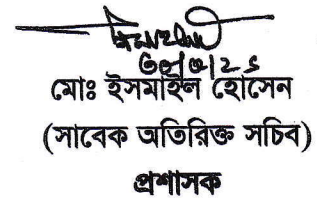 ৩০/৩/২৬
মোঃ ইসমাইল হোসেন
(সাবেক অতিরিক্ত সচিব)
প্রশাসক